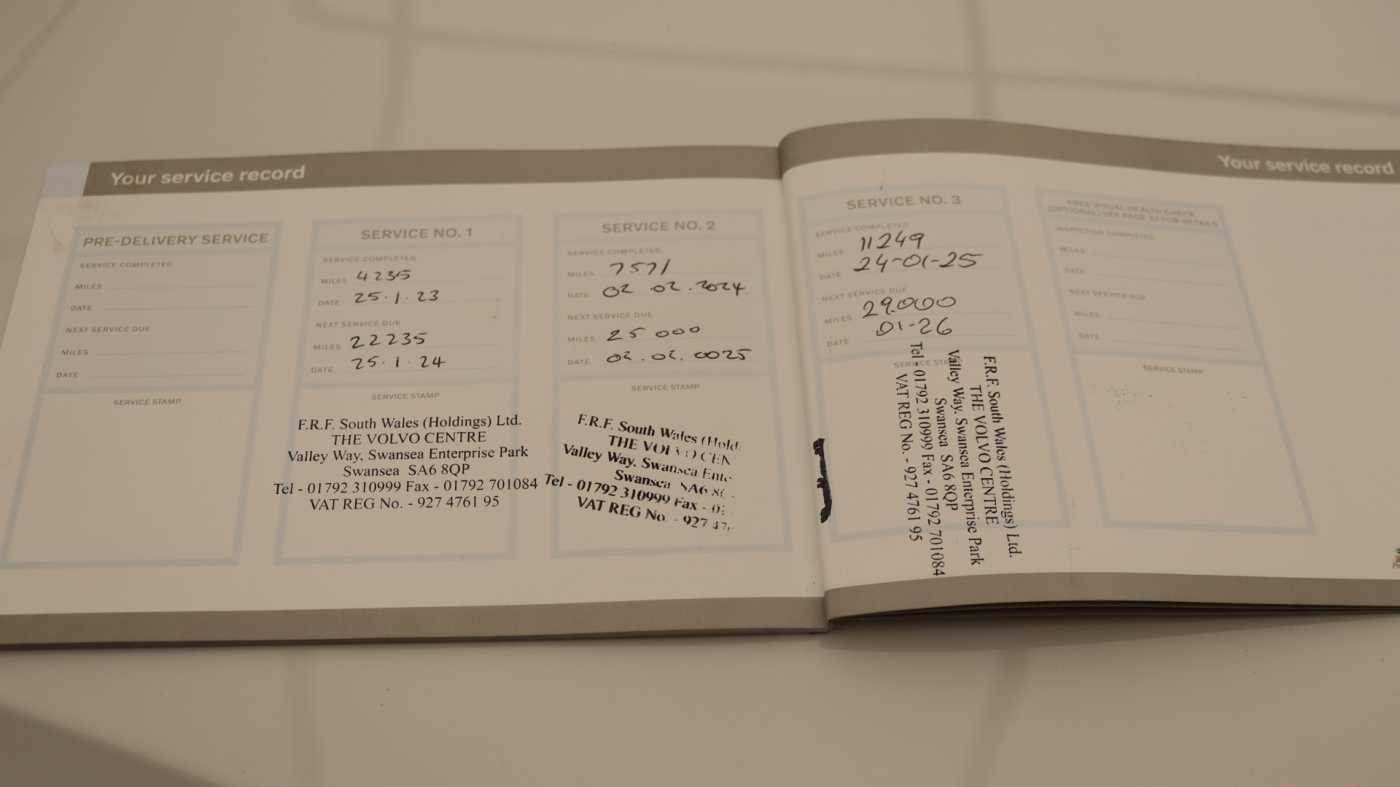 Your service record
PRE-DELIVERY SERVICE
SERVICE COMPLETED
MILES
DATE
NEXT SERVICE DUE
MILES
DATE
SERVICE STAMP
SERVICE NO. 1
SERVICE COMPLETED
MILES 4235
DATE 25.1.23
NEXT SERVICE DUE
MILES 22235
DATE 25.1.24
SERVICE STAMP
F.R.F. South Wales (Holdings) Ltd.
THE VOLVO CENTRE
Valley Way, Swansea Enterprise Park
Swansea SA6 8QP
Tel - 01792 310999 Fax - 01792 701084
VAT REG No. - 927 4761 95
SERVICE NO. 2
SERVICE COMPLETED
MILES 7571
DATE 02.02.2024
NEXT SERVICE DUE
MILES 25000
DATE 02.02.0025
SERVICE STAMP
F.R.F. South Wales (Hold
THE VOLVO CEN
Valley Way, Swansea Ente
Swansea SA6 8
Tel - 01792 310999 Fax - 0
VAT REG No. - 927 47
Your service record
SERVICE NO. 3
SERVICE COMPLETED
MILES 11249
DATE 24-01-25
NEXT SERVICE DUE
MILES 29.000
DATE 01-26
SERVICE STAMP
F.R.F. South Wales (Holdings) Ltd.
THE VOLVO CENTRE
Valley Way, Swansea Enterprise Park
Swansea SA6 8QP
Tel - 01792 310999 Fax - 01792 701084
VAT REG No. - 927 4761 95
FREE VISUAL HEALTH CHECK
(OPTIONAL) SEE PAGE 37 FOR DETAILS
INSPECTION COMPLETED
MILES
DATE
NEXT SERVICE DUE
MILES
DATE
SERVICE STAMP